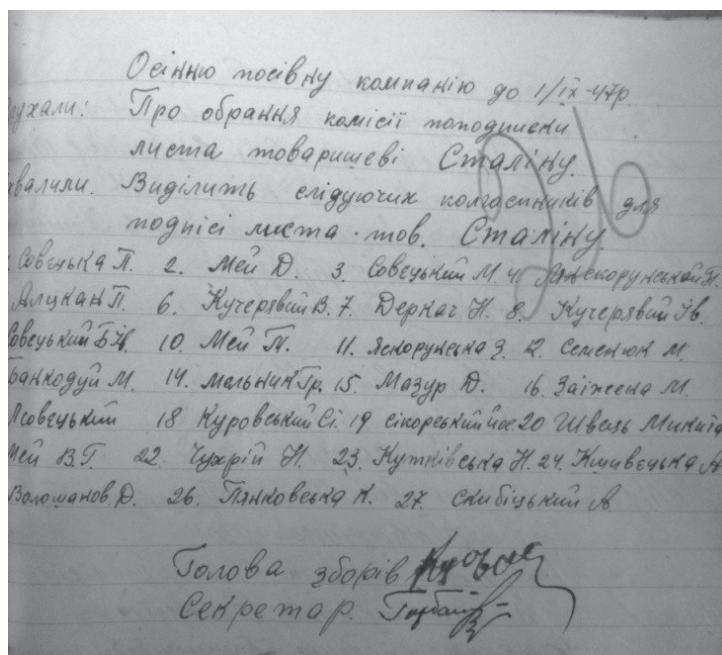 Осінню посівну компанію до 1/ІХ-47р.
ухали: Про обрання комісії поподписки
листа товаришеві Сталіну.
хвалили. Виділить слідуючих колгоспників для
подпісі листа тов. Сталіну
Совецька П. 2. Мей Д. 3. Совецький М. 4.
П. 6. Кучерявий В. 7. Деркач Н. 8. Кучерявий Ів.
Совецький 10. Мей Т. 11. Яскорунська З. 12. Семенюк М.
Банкодуй М. 14. Мельник Гр. 15. Мазур Д. 16. Заїжена М.
18 Куровський Сі. 19 Сікорський Йос 20 Швець Микита
Мей В.Г. 22. Чухрій Н. 23. Кутківська Н. 24. А
Воломанов Д. 26. Пянковська К. 27. Скибіцький А
Голова зборів
Секретар.